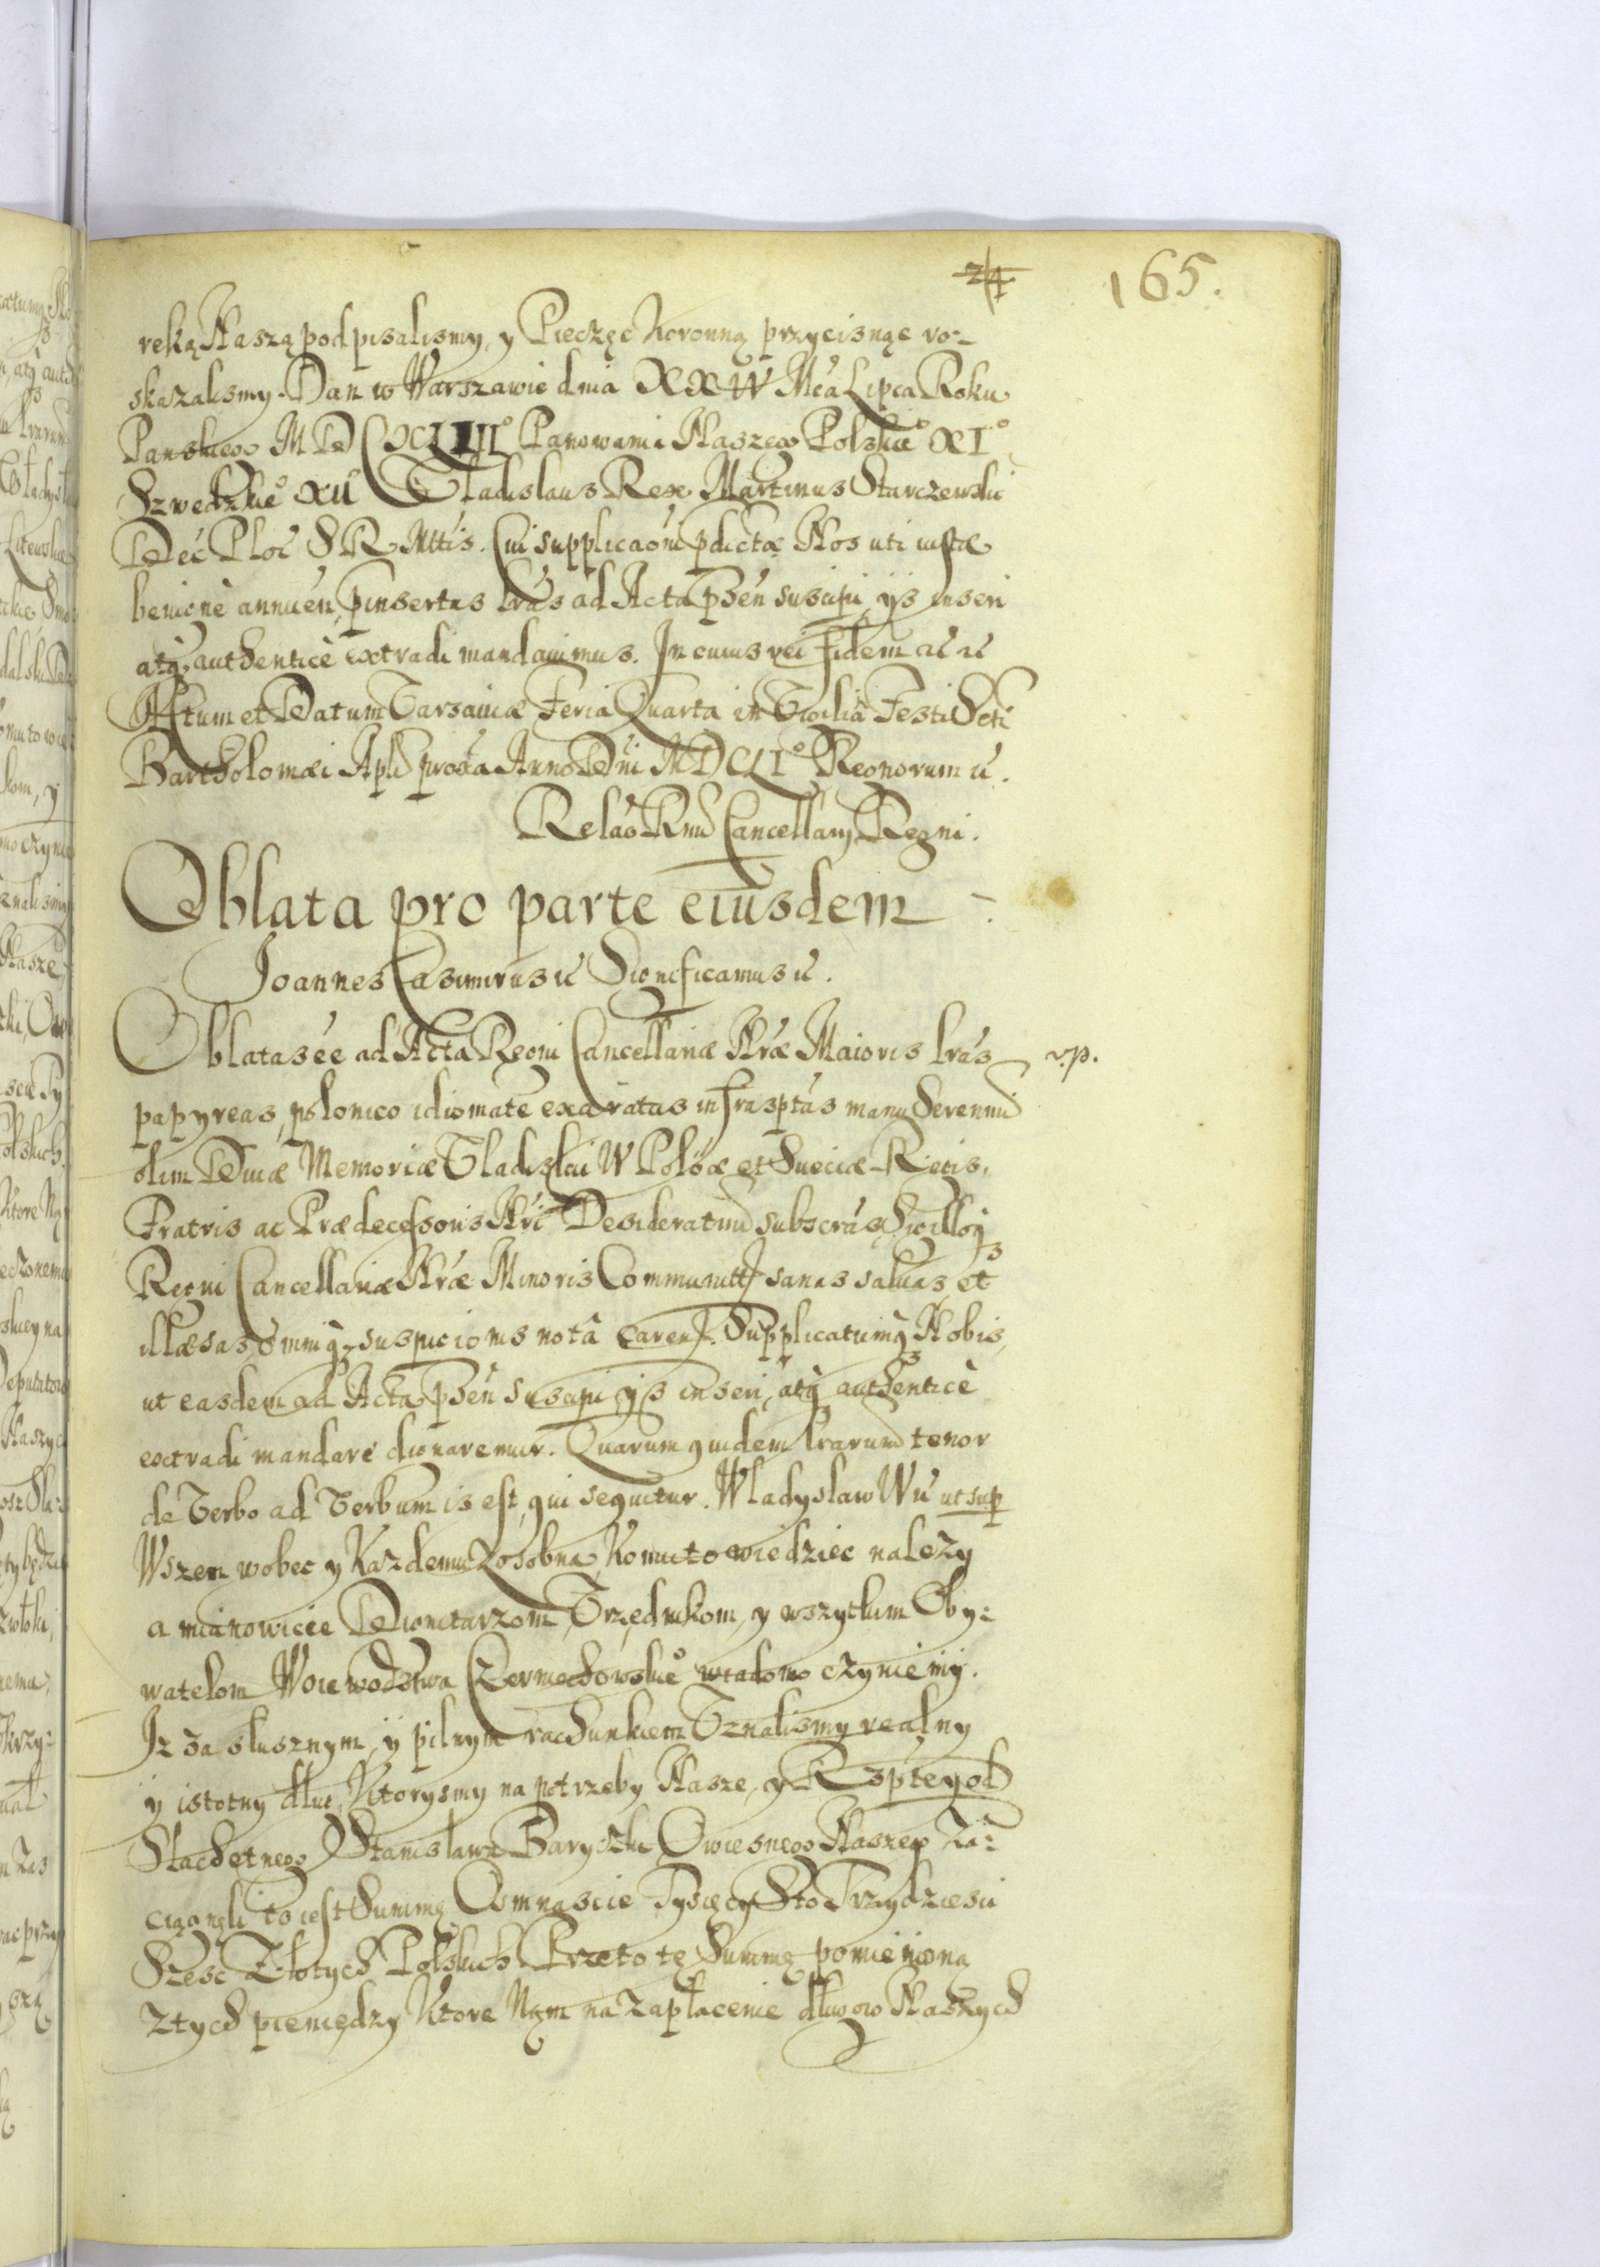 165.
ręką Naszą podpisalismy, y Pieczęc Koronną przycisnąc ro-
skazalismy. Dan w Warszawie dnia XXIV Mca Lipca Roku
Panskiego MDCXLIII° Panowania Naszego Polskie° XI°
Szwedzkie° XII Vladislaus Rex. Martinus Starczewski
Dec Ploc S R Mttis. Cui supplicaoni pdictæ Nos uti iustæ
benigne annuen, pinsertas lras ad Acta psen suscipi, ijs inseri
atq authenticè extradi mandauimus. In cuius rei fidem etc etc
Actum et Datum Varsauiæ Feria Quarta in Vigilia Festi Scti
Bartholomæi Apli proxa Anno Dni MDCLI° Regnorum etc.
Relao Rmi Cancellarij Regni.
Oblata pro parte eiusdem
Joannes Casimirus etc Significamus etc.
Oblatas ee ad Acta Regni Cancellariæ Nræ Maioris lras v.p.
papyreas, polonico idiomate exaratas infrasptas manu Serenmi
olim Diuæ Memoriæ Vladislai IV Poloæ et Sueciæ Regis,
Fratris ac Prædecessoris Nri Desideratmi subscras, Sigilloq
Regni Cancellariæ Nræ Minoris Communitt, sanas saluas, et
illæsas, omniq suspicionis notâ caren. Supplicatumq Nobis,
ut easdem ad Acta psen suscipi ijs inseri, atq authenticè
extradi mandare dignaremur. Quarum quidem lrarum tenor
de Verbo ad Verbum is est, qui sequitur. Wladyslaw IV etc ut sup
Wszem wobec y Kazdemu zosobna, Komu to wiedziec nalezy
a mianowicie Dignitarzom, Vrzędnikom, y wszytkim Oby-
watelom Woiewodztwa Czerniechowskie° wiadomo czyniemy.
Iz za slusznym, y pilnym rachunkiem Vznalismy realny
y istotny dlug, Ktorysmy na potrzeby Nasze, y Rzptey od
Slachetnego Stanisława Baryczki Owiesnego Naszego Za-
ciągnęli to iest Summę Osmnascie Tysięcy Sto Trzydziesci
Szesc Złotych Polskich Przeto tę Summę pomienioną
z tych pieniędzy Ktore Nam na Zapłacenie długow Naszych